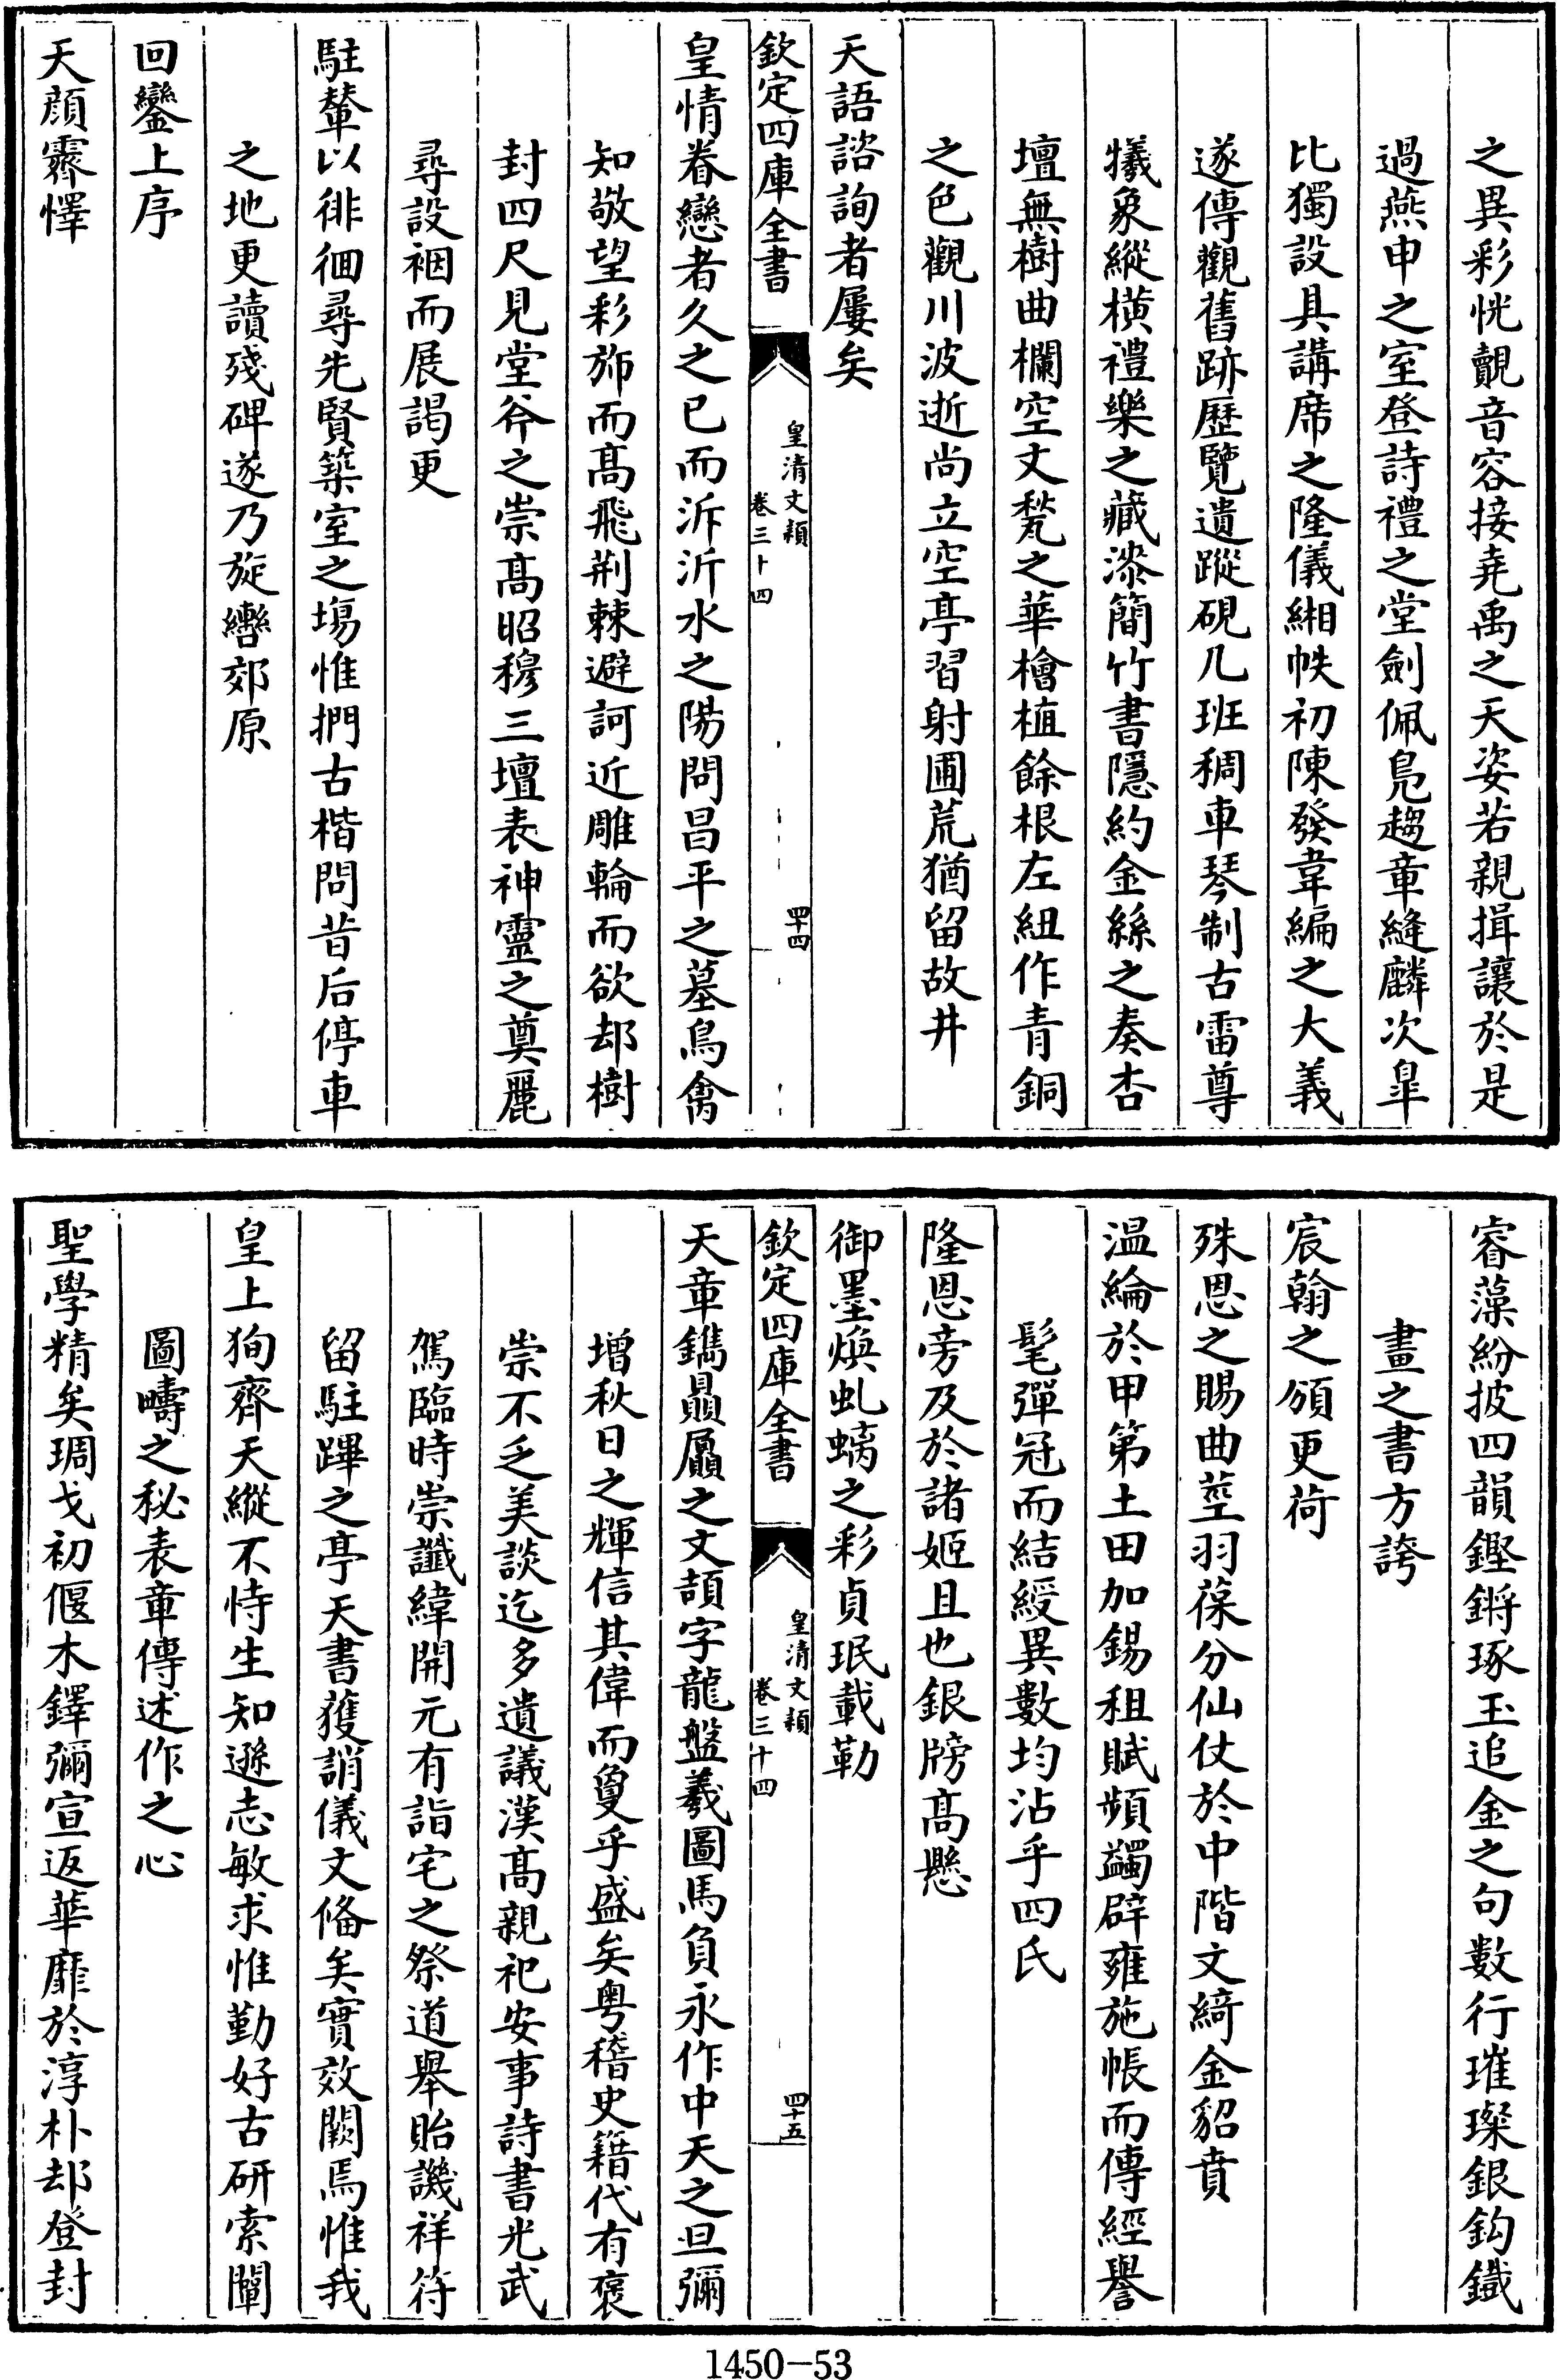 之異彩恍覿音容接堯禹之天姿若親揖讓於是
過燕申之室登詩禮之堂劍佩鳧趨章縫麟次臯
比獨設具講席之隆儀緗帙初陳發韋編之大義
遂傳觀舊跡歷覽遺蹤硯几班稠車琴制古雷尊
犧象縱橫禮樂之藏漆簡竹書隱約金絲之奏杏
壇無樹曲欄空文甃之華檜植餘根左紐作青銅
之色觀川波逝尚立空亭習射圃荒猶留故井
天語諮詢者屢矣
欽定四庫全書
皇清文穎
卷三十四
四十四
皇情眷戀者久之已而泝沂水之陽問昌平之墓鳥禽
知敬望彩斾而髙飛荆棘避訶近雕輪而欲却樹
封四尺見堂斧之崇髙昭穆三壇表神靈之奠麗
尋設裀而展謁更
駐輦以徘徊尋先賢築室之塲惟捫古楷問昔后停車
之地更讀殘碑遂乃旋轡郊原
回鑾上序
天顔霽懌
睿藻紛披四韻鏗鏘琢玉追金之句數行璀璨銀鈎鐵
畫之書方誇
宸翰之頒更荷
殊恩之賜曲莖羽葆分仙仗於中階文綺金貂賁
温綸於甲第土田加錫租賦頻蠲辟雍施帳而傳經譽
髦彈冠而結綬異數均沾乎四氏
隆恩旁及於諸姬且也銀牓髙懸
御墨煥虬螭之彩貞珉載勒
欽定四庫全書
皇清文穎
卷三十四
四十五
天章鐫贔屭之文頡字龍盤羲圖馬負永作中天之旦彌
增秋日之輝信其偉而敻乎盛矣粤稽史籍代有褒
崇不乏美談迄多遺議漢髙親祀安事詩書光武
駕臨時崇讖緯開元有詣宅之祭道舉貽譏祥符
留駐蹕之亭天書獲誚儀文偹矣實效闕焉惟我
皇上狥齊天縱不恃生知遜志敏求惟勤好古研索闡
圖疇之秘表章傳述作之心
聖學精矣琱戈初偃木鐸彌宣返華靡於淳朴却登封
1450-53